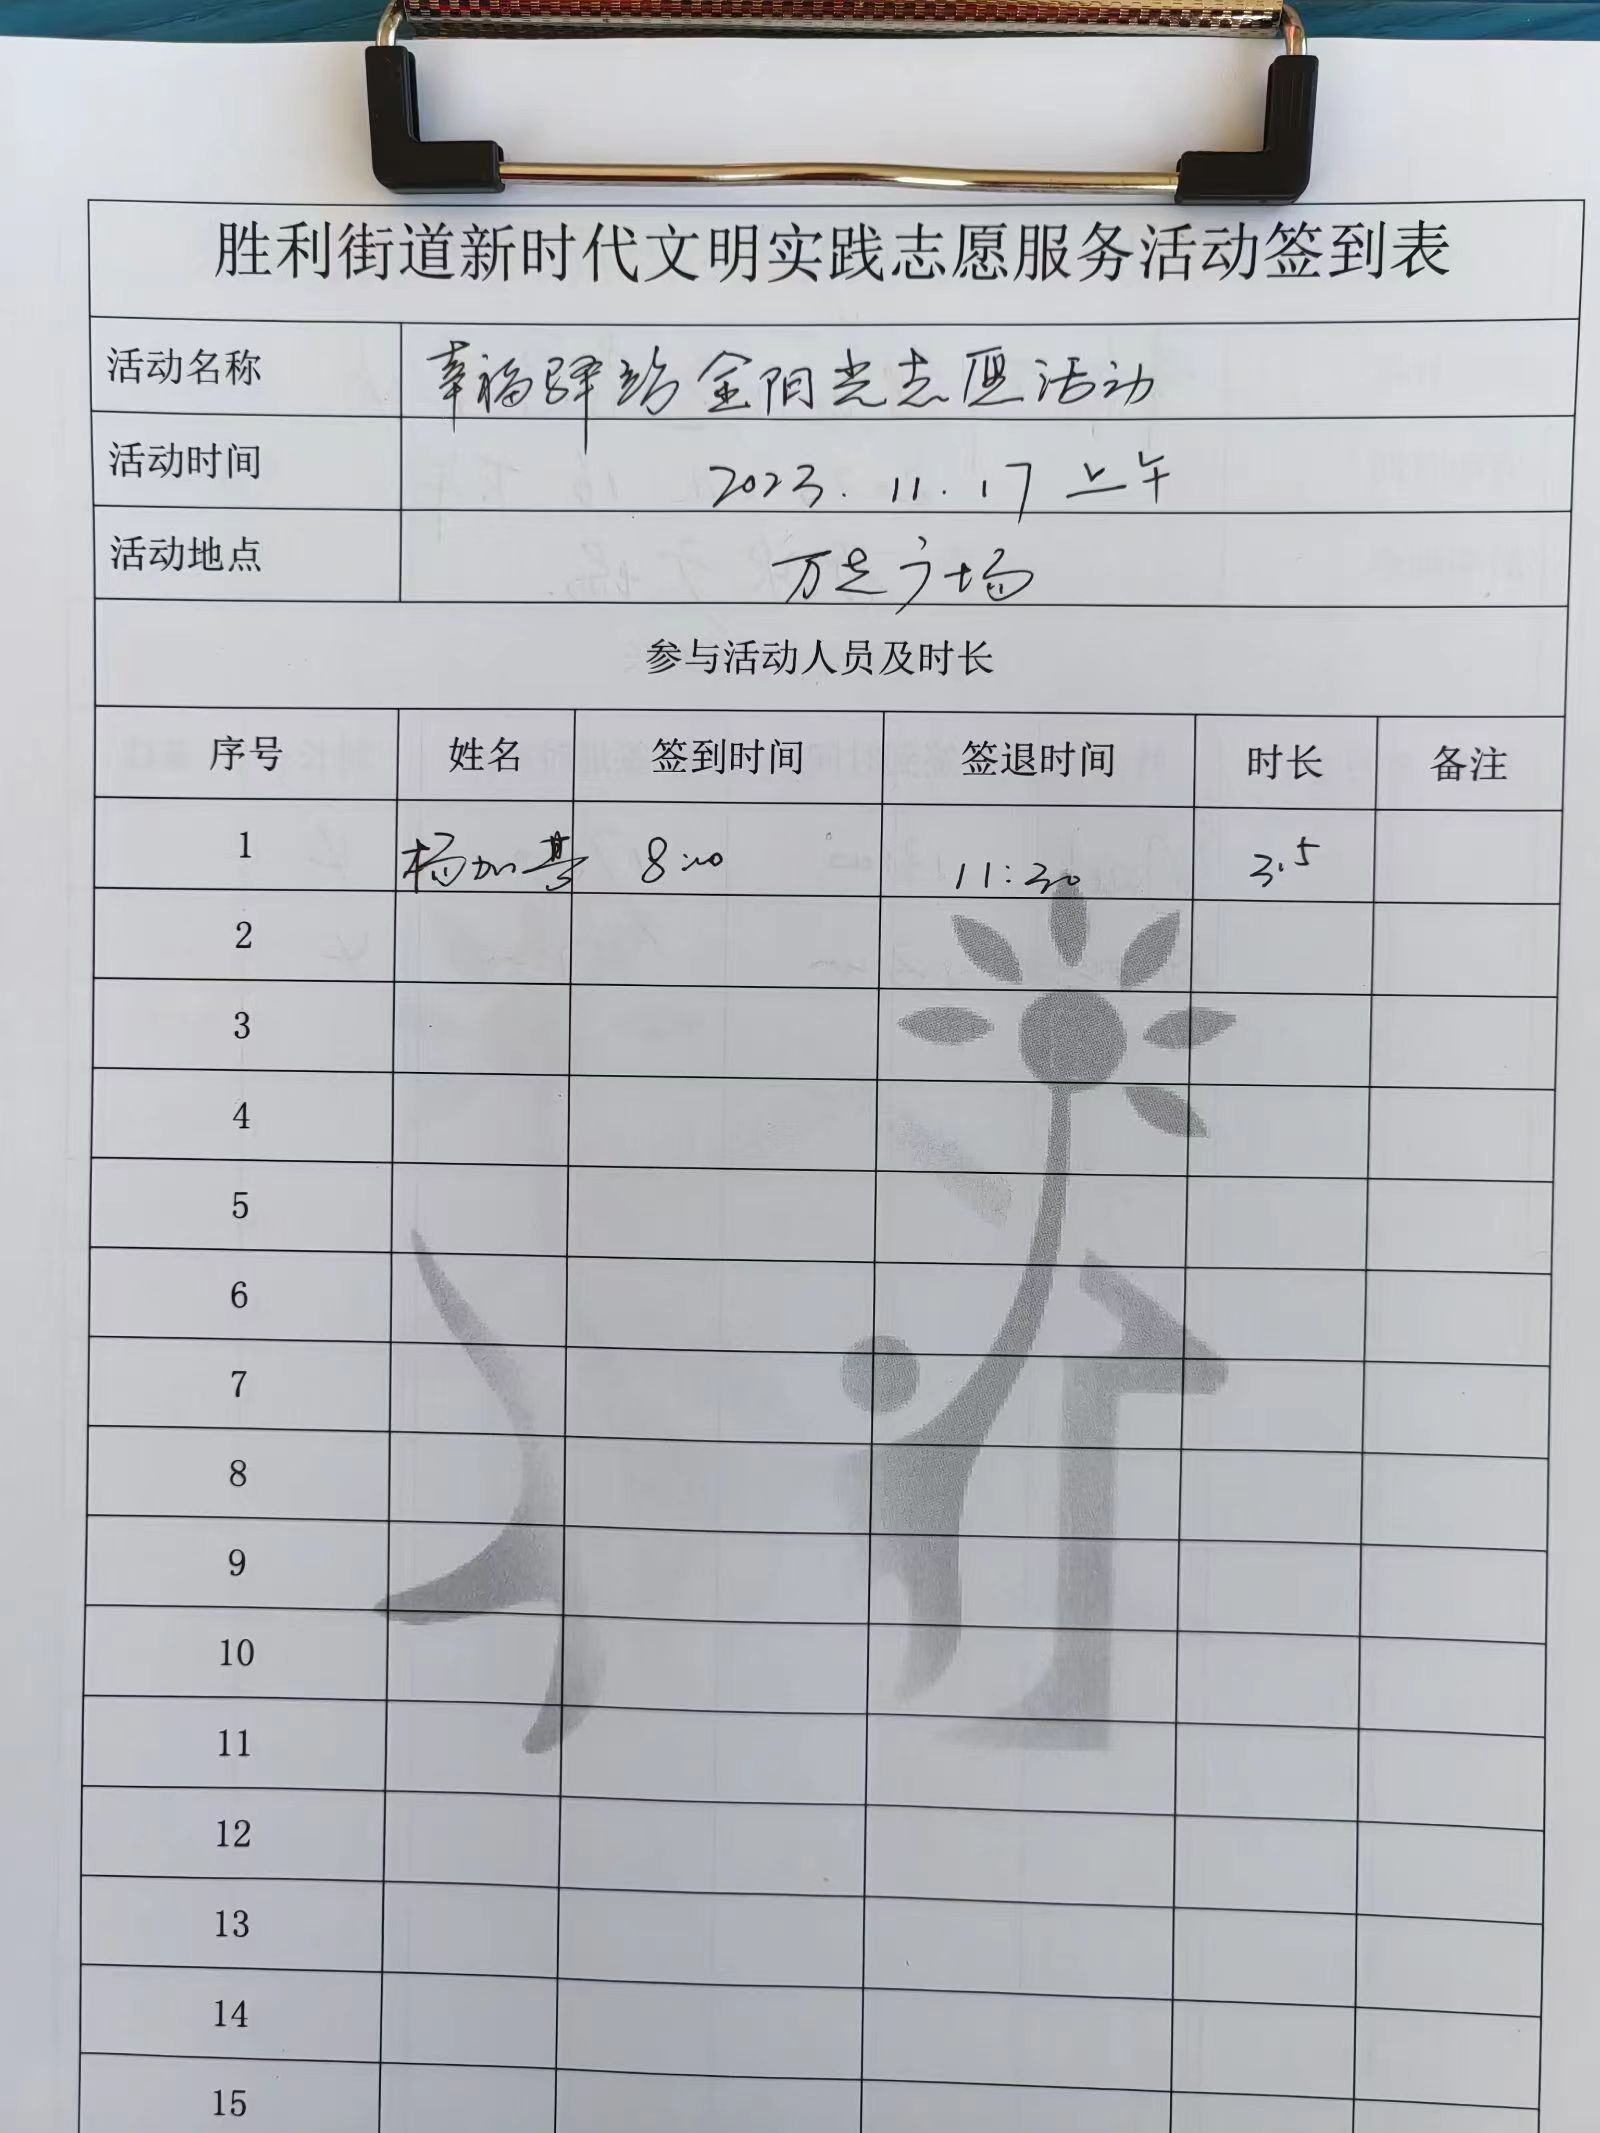 胜利街道新时代文明实践志愿服务活动签到表
活动名称 幸福驿站金阳光志愿活动
活动时间 2023.11.17 上午
活动地点 万达广场
参与活动人员及时长
序号 姓名 签到时间 签退时间 时长 备注
1 杨加 8:00 11:30 3.5
2
3
4
5
6
7
8
9
10
11
12
13
14
15